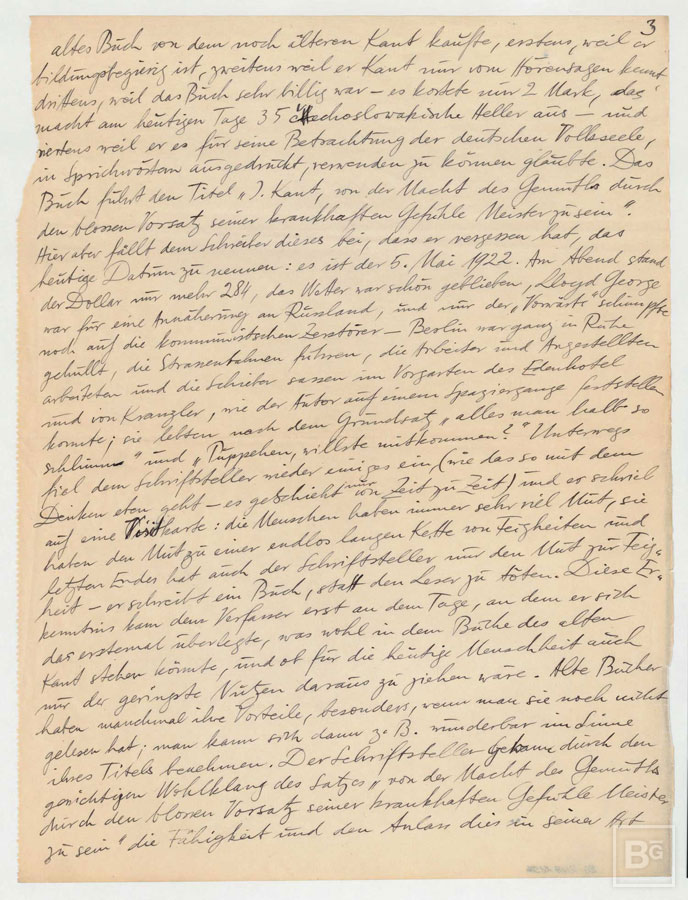 3
altes Buch von dem noch älteren Kant kaufte, erstens, weil er
bildungsbegierig ist, zweitens weil er Kant nur vom Hörensagen kennt
drittens, weil das Buch sehr billig war – es kostete nur 2 Mark, das
macht am heutigen Tage 35 tschechoslowakische Heller aus – und
viertens weil er es für seine Betrachtung der deutschen Volksseele,
in Sprichwörtern ausgedrückt, verwenden zu können glaubte. Das
Buch führt den Titel „I. Kant, von der Macht des Gemuths durch
den blossen Vorsatz seiner krankhaften Gefühle Meister zu sein".
Hier aber fällt dem Schreiber dieses bei, dass er vergessen hat, das
heutige Datum zu nennen: es ist der 5. Mai 1922. Am Abend stand
der Dollar nur mehr 284, das Wetter war schön geblieben, Lloyd George
war für eine Annäherung an Russland, und nur der „Vorwärts" schimpfte
noch auf die kommunistischen Zerstörer – Berlin war ganz in Ruhe
gehüllt, die Strassenbahnen fuhren, die Arbeiter und Angestellten
arbeiteten und die Schieber sassen im Vorgarten des Edenhotel
und von Kranzler, wie der Autor auf einem Spaziergange feststellen
konnte; sie lebten nach dem Grundsatz „alles man halb so
schlimm" und „Puppchen, willste mitkommen?" Unterwegs
fiel dem Schriftsteller wieder einiges ein, (wie das so mit dem
Denken eben geht – es geschieht nur von Zeit zu Zeit) und er schrieb
auf eine Visitkarte: die Menschen haben immer sehr viel Mut, sie
haben den Mut zu einer endlos langen Kette von Feigheiten und
letzten Endes hat auch der Schriftsteller nur den Mut zur Feig-
heit – er schreibt ein Buch, statt den Leser zu töten. Diese Er-
kenntnis kam dem Verfasser erst an dem Tage, an dem er sich
das erstemal überlegte, was wohl in dem Buche des alten
Kant stehen könnte, und ob für die heutige Menschheit auch
nur der geringste Nutzen daraus zu ziehen wäre. Alte Bücher
haben manchmal ihre Vorteile, besonders, wenn man sie noch nicht
gelesen hat; man kann sich dann z. B. wunderbar im Sinne
ihres Titels benehmen. Der Schriftsteller bekam durch den
gewichtigen Wohlklang des Satzes „von der Macht des Gemuths
durch den blossen Vorsatz seiner krankhaften Gefühle Meister
zu sein" die Fähigkeit und den Anlass dies in seiner Art
BG